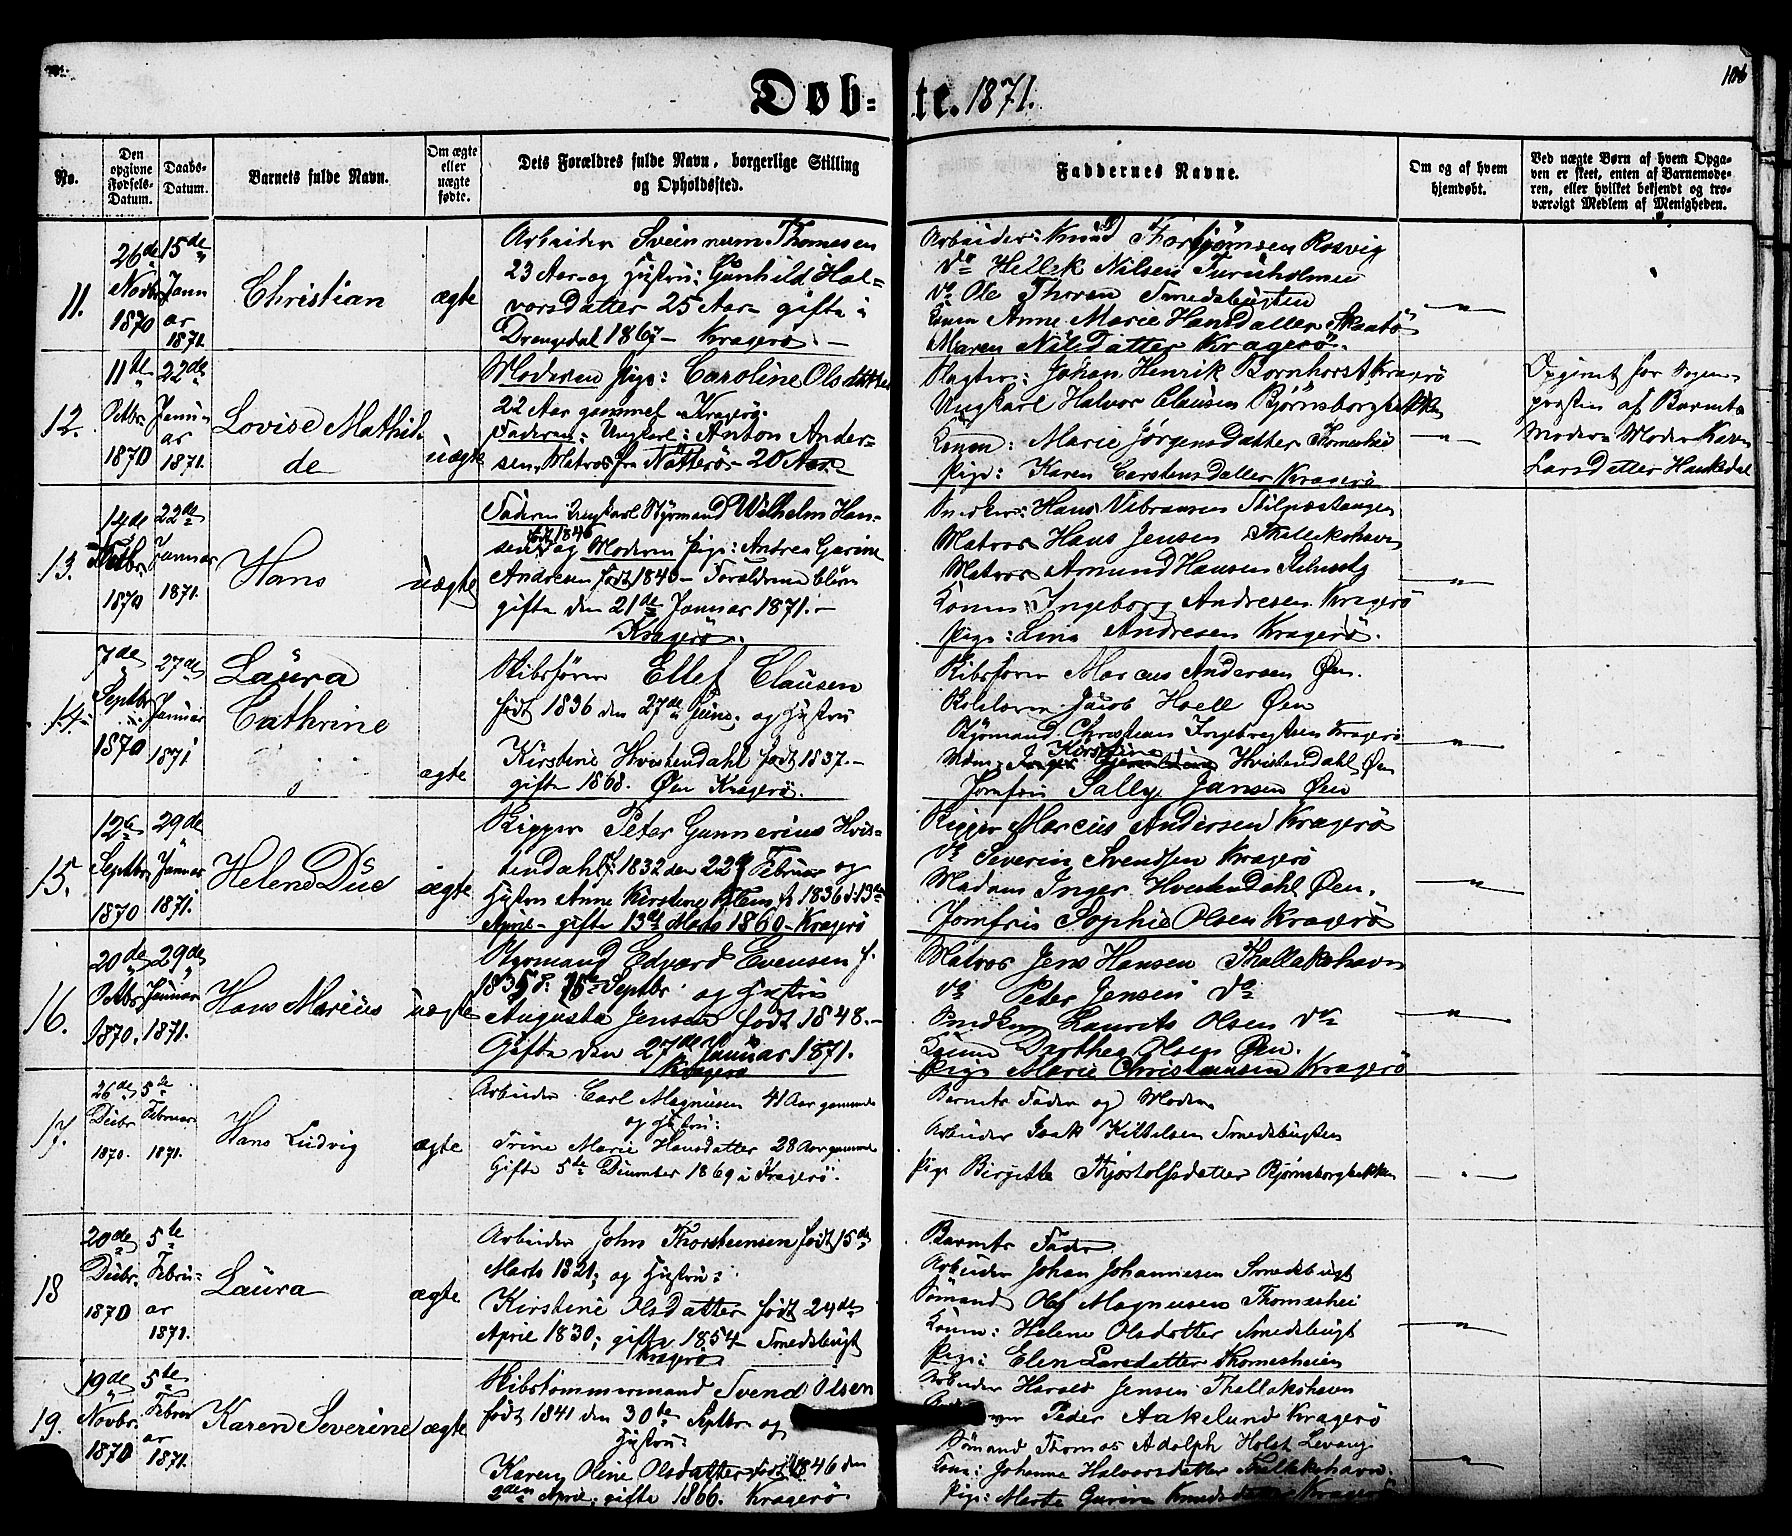 Døb-te. 1871.
106
No.
Den opgivne Fødsels-Datum.
Daabs-Datum.
Barnets fulde Navn.
Om ægte eller uægte fødte.
Dets Forældres fulde Navn, borgerlige Stilling og Opholdssted.
Faddernes Navne.
Om og af hvem hjemdøbt.
Ved uægte Børn af hvem Opga-
ven er skeet, enten af Barnemode-
ren, eller hvilket bekjendt og tro-
værdigt Medlem af Menigheden.
11.
26de Novbr 1870
15de Januar 1871.
Christian
ægte
Arbeider Thomesen
23 Aar og Hustru: Gunhild Hal-
vorsdatter 25 Aar gifte i
Drangedal 1867 - Kragerø -
Arbeider: Knud Thorbjørnsen Rosvig
do Hellek Nilsen Furuholmen
do Ole Thoresen Smedsbugten
Konen Anne Marie Hansdatter Skaatø
Maren Nilsdatter Kragerø.
12.
11te Octbr 1870
22de Januar 1871.
Lovise Mathil-
de
uægte
Moderen Pige: Caroline Olsdatter
22 Aar gammel Kragerø.
Faderen: Ungkarl: Anton Ander-
sen, Matros fra Nøtterø - 20 Aar
Johan Henrik Bornhorst, Kragerø
Ungkarl Halvor Clausen Bjørnsborgbakken
Konen: Marie Jørgensdatter Thomeshei
Pige: Karen Carstensdatter Kragerø
Opgivet for Sogne-
præsten af Barnets
Moders Moder Karen
Larsdatter
13.
14de Octbr 1870
22de Januar 1871.
Hans
uægte
Faderen Ungkarl Styrmand Wilhelm Han-
sen født 1846 og Moderen Pige: Andrea Gurine
Andresen født 1845 - Forældrene bleve
gifte den 21de Januar 1871. -
Kragerø.
Hans Vibransen Stilnæstangen
Matros Hans Jensen Thallakshavn
Matros Amund Hansen
Konen: Ingeborg Andresen Kragerø
Pige: Lina Andresen Kragerø.
14.
7de Septbr 1870
27de Januar 1871
Laura
Cathrine
ægte
Skibsfører Ellef Clausen
født 1836 den 27de Juni. og Hustru
Kirstine Hvistendahl født 1837. -
gifte 1868. Øen Kragerø.
Skibsfører Marcus Andersen Øen.
Jacob Hoell Øen
Styrmand Christian Ingebregtsen Kragerø
Kirstine Hvistendahl Øen
Jomfru Sally Jansen Øen
15.
12te Septbr 1870
29de Januar 1871.
Helene Due
ægte
Rigger Peter Gunnerius Hvis-
tendahl f. 1832 den 22de Februar og
Hustru Anne Kirstine Klem f. 1836 d. 13de
April - gifte 13de Marts 1860 - Kragerø
Rigger Marcus Andersen Kragerø
do Severin Svendsen Kragerø
Madam Inger Hvistendahl Øen.
Jomfru Sophie Olsen Kragerø
16.
20de Octbr 1870.
29de Januar 1871.
Hans Marcus
uægte
Styrmand Edvard Evensen f.
1835 d: 15de Septbr. og Hustru
Augusta Jensen født 1848. -
Gifte den 27de Januar 1871.
Kragerø
Matros Jens Hansen Thallakshavn
do Peter Jensen do
Laurits Olsen do
Konen Dorthea Olsen Øen.
Pige Marie Christiansen Kragerø
17.
26de Decbr 1870.
5te Februar 1871.
Hans Ludvig
ægte
Arbeider Carl Magnusen 41 Aar gammel
og Hustru:
Trine Marie Hansdatter 28 Aar gammel
Gifte 5te December 1869 i Kragerø.
Barnets Fader og Moder
Arbeider Isak Kittilsen Smedsbugten
Pige Birgitte Kjøstolfsdatter Bjørnsborgbakken
18
20de Decbr. 1870
5te Februar 1871.
Laura
ægte
Arbeider John Thorsteinsen født 15de
Marts 1821; og Hustru:
Kirstine Olsdatter født 24de
April 1830; gifte 1854 - Smedsbugt
Kragerø
Barnets Fader
Arbeider Johan Johannesen Smedsbugt
Sømand Olaf Magnusen Thomeshei
Konen: Helene Olsdatter Smedsbugt
Pige: Elen Larsdatter Thomesheien
19.
19de Novbr. 1870
5te Februar 1871.
Karen Severine
ægte
Skibstømmermand Svend Olsen
født 1841 den 30te Septbr og
Hustru:
Karen Oline Olsdatter født 1846 den
2den April; gifte 1866. Kragerø
Arbeider Harald Jensen Thallakshavn
Peder Aakelund Kragerø
Sømand Thomas Adolph Holst Levang
Kone: Johanne Halvorsdatter Thallakshavn.
Pige: Marte Gurine Kragerø